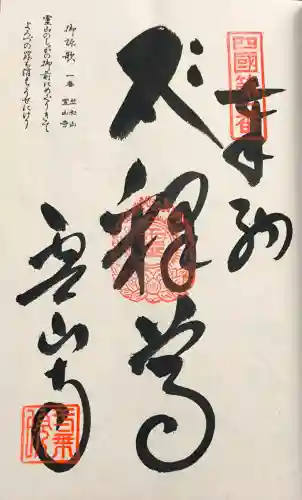 四國第一番
奉納
釋尊
霊山寺
御詠歌 一番 竺和山
霊山寺
霊山のしゃかの御前にめぐりきて
よろづの罪も消えうせにけり